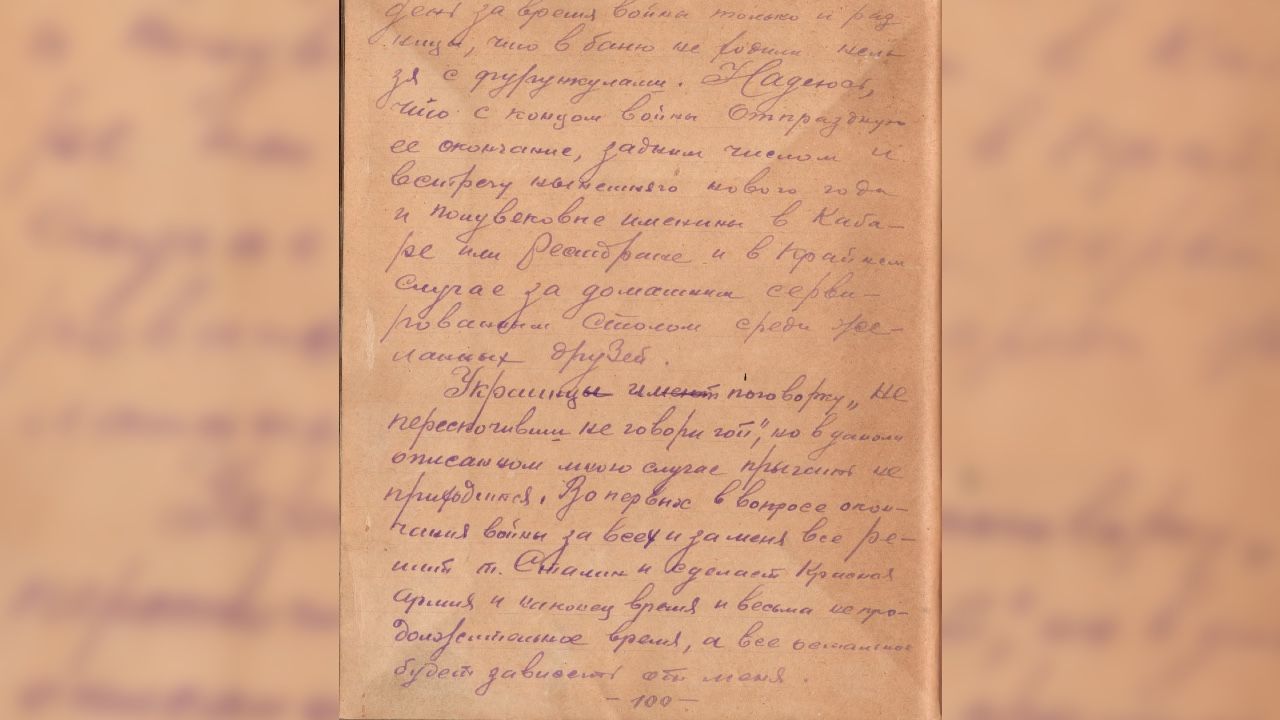 день за время войны только и раз
ницы, что в баню не ходили нель
зя с фурункулами. Надеюсь,
что с концом войны отпраздную
ее окончание, задним числом и
встречу нынешнего нового года
и полувековые именины в Каба-
ре или Ресторане и в крайнем
случае за домашним серви-
рованным столом среди же-
ланных друзей.
Украинцы имеют поговорку „не
перескочивши не говори гоп", но в данном
описанном мною случае прыгать не
приходится. Во первых в вопросе окон-
чания войны за всех и за меня все ре-
шит т. Сталин и сделает Красная
армия и наконец время и весьма непро-
должительное время, а все остальное
будет зависеть от меня.
- 100 -